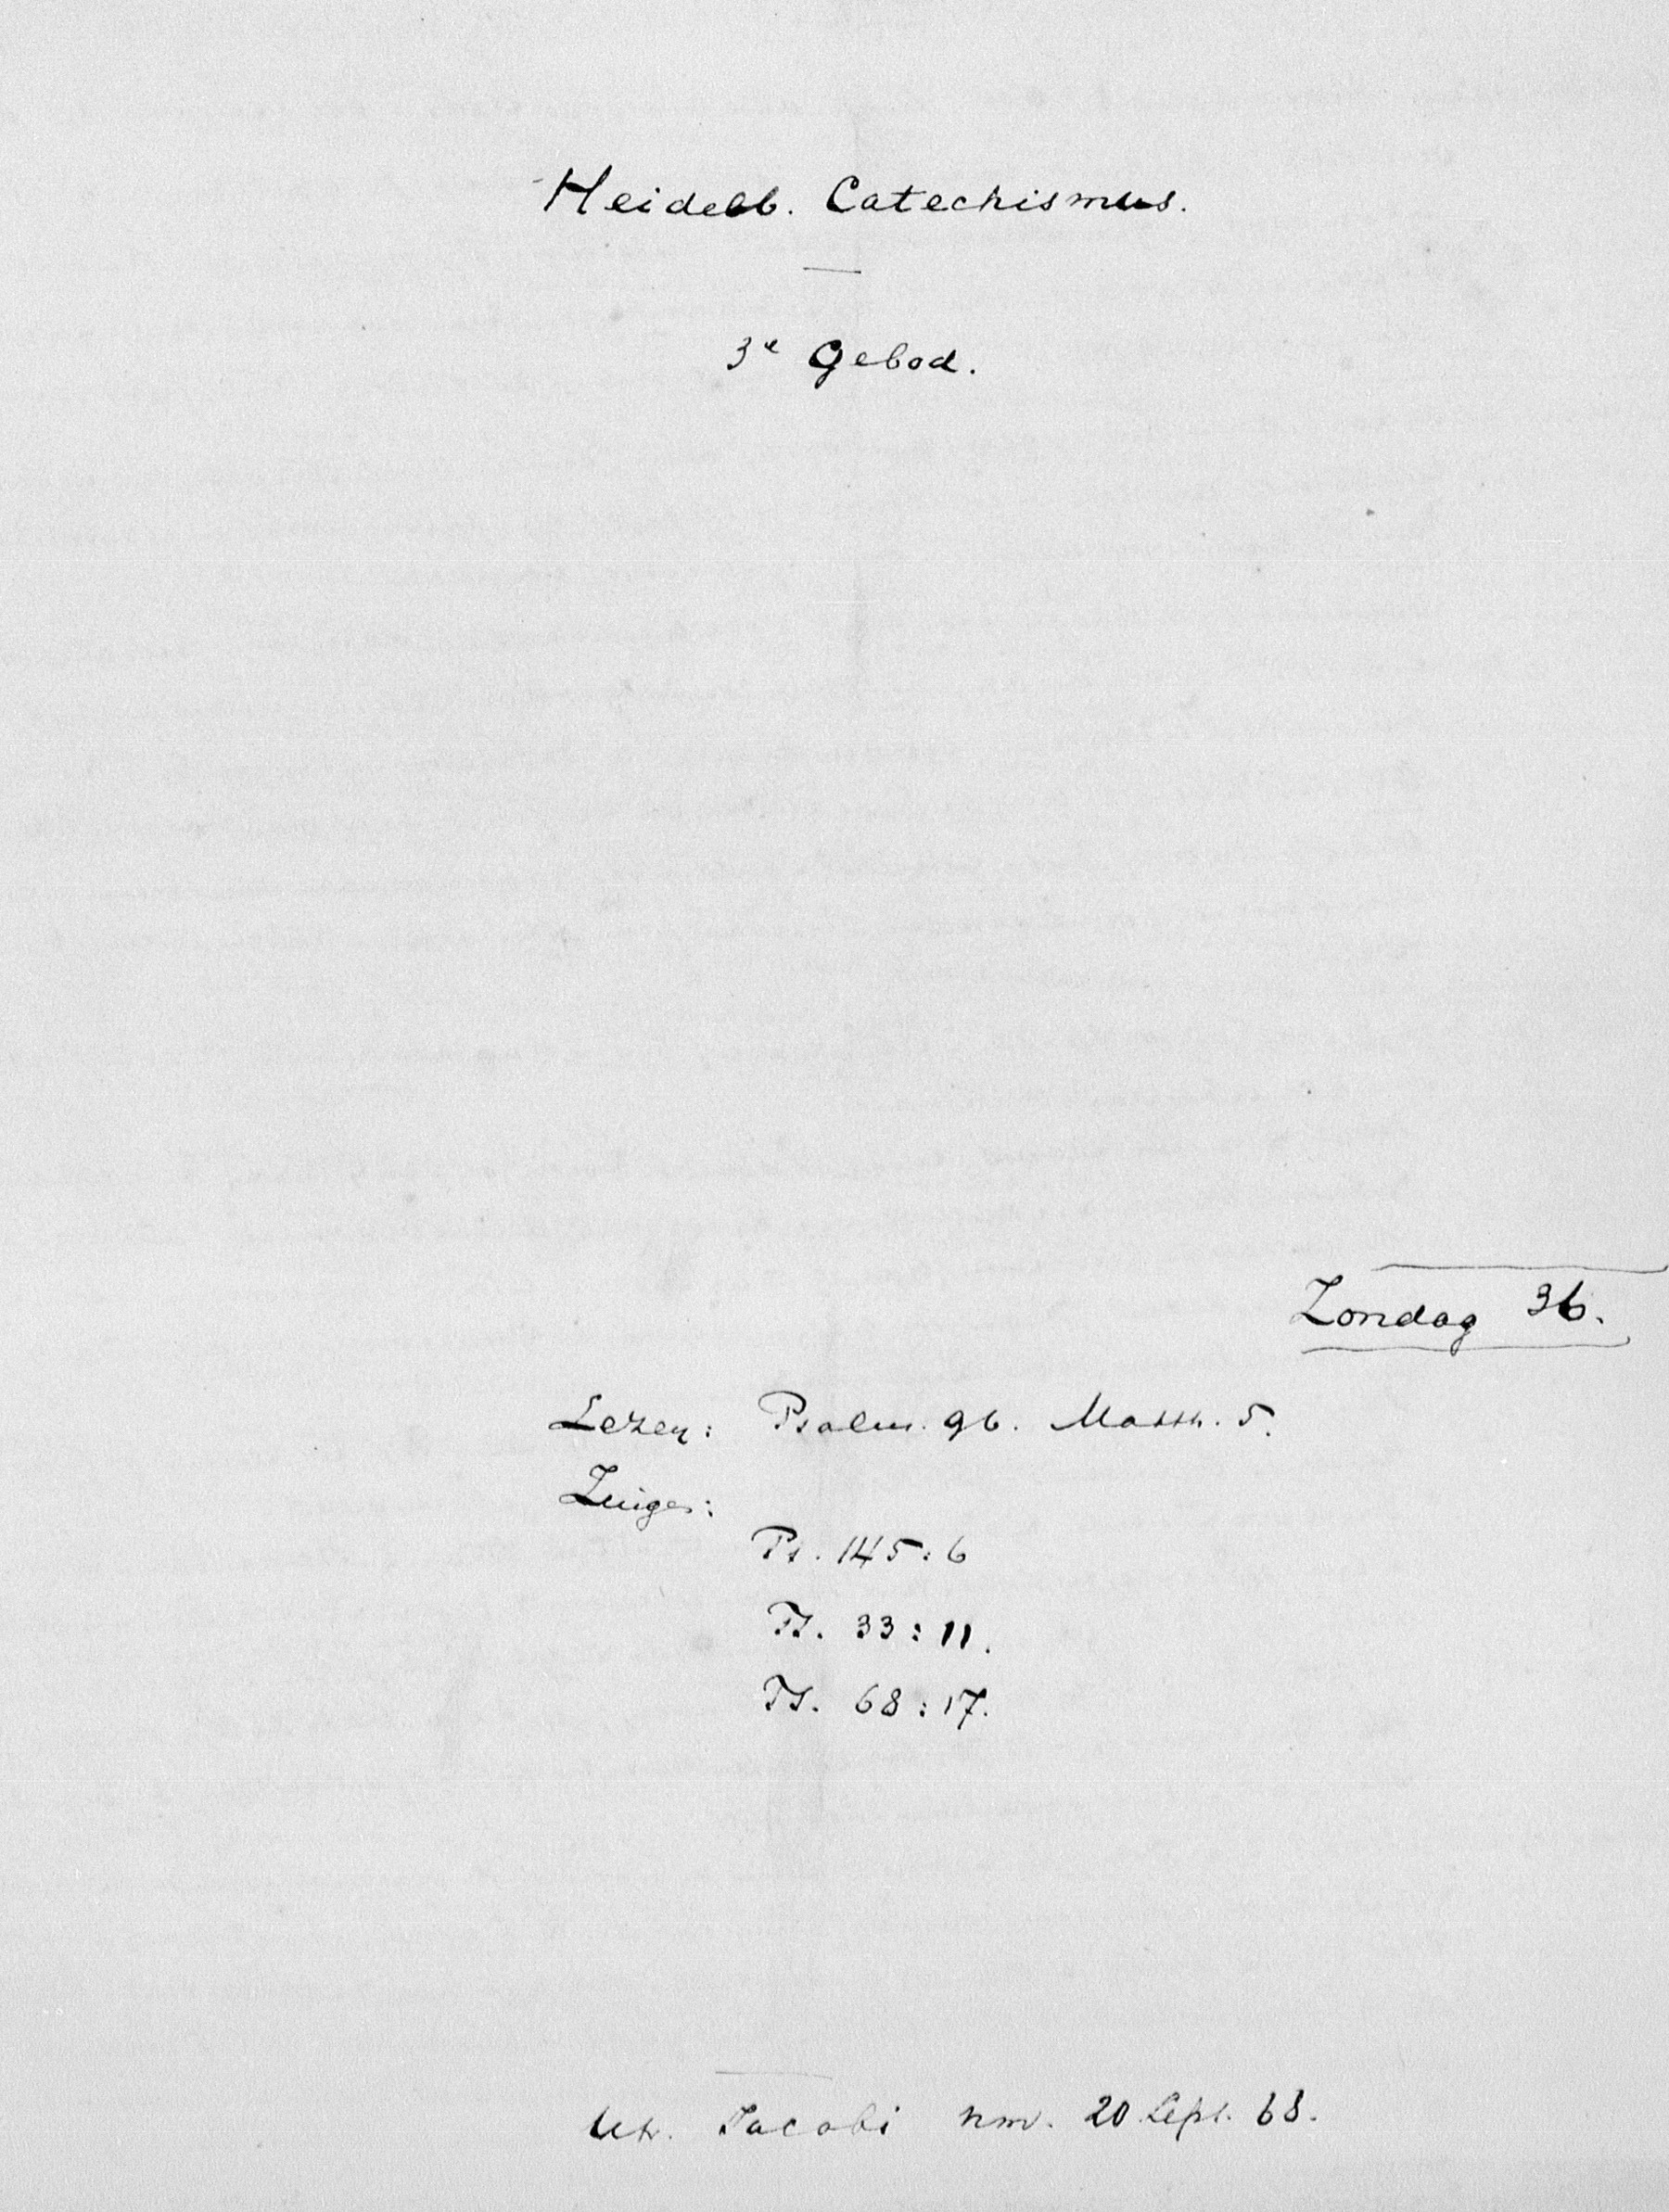 Heidelb. Catechismus.
3e Gebod.
Zondag 36.
Lezen: Psalm. 96. Matth. 5.
Zingen:
Ps. 145:6
Ps. 33:11.
Ps. 68:17.
Utr. Jacobi nm. 20 Sept. 68.